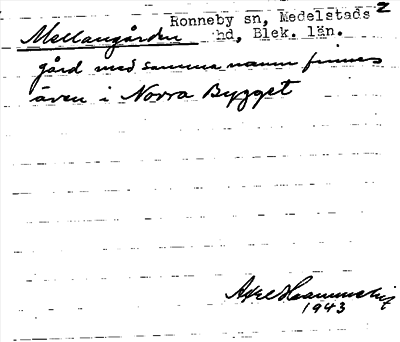 Ronneby sn, Medelstads 2
Mellangården hd, Blek. län.
gård med samma namn finnes
även i Norra Bygget
Axel
1943